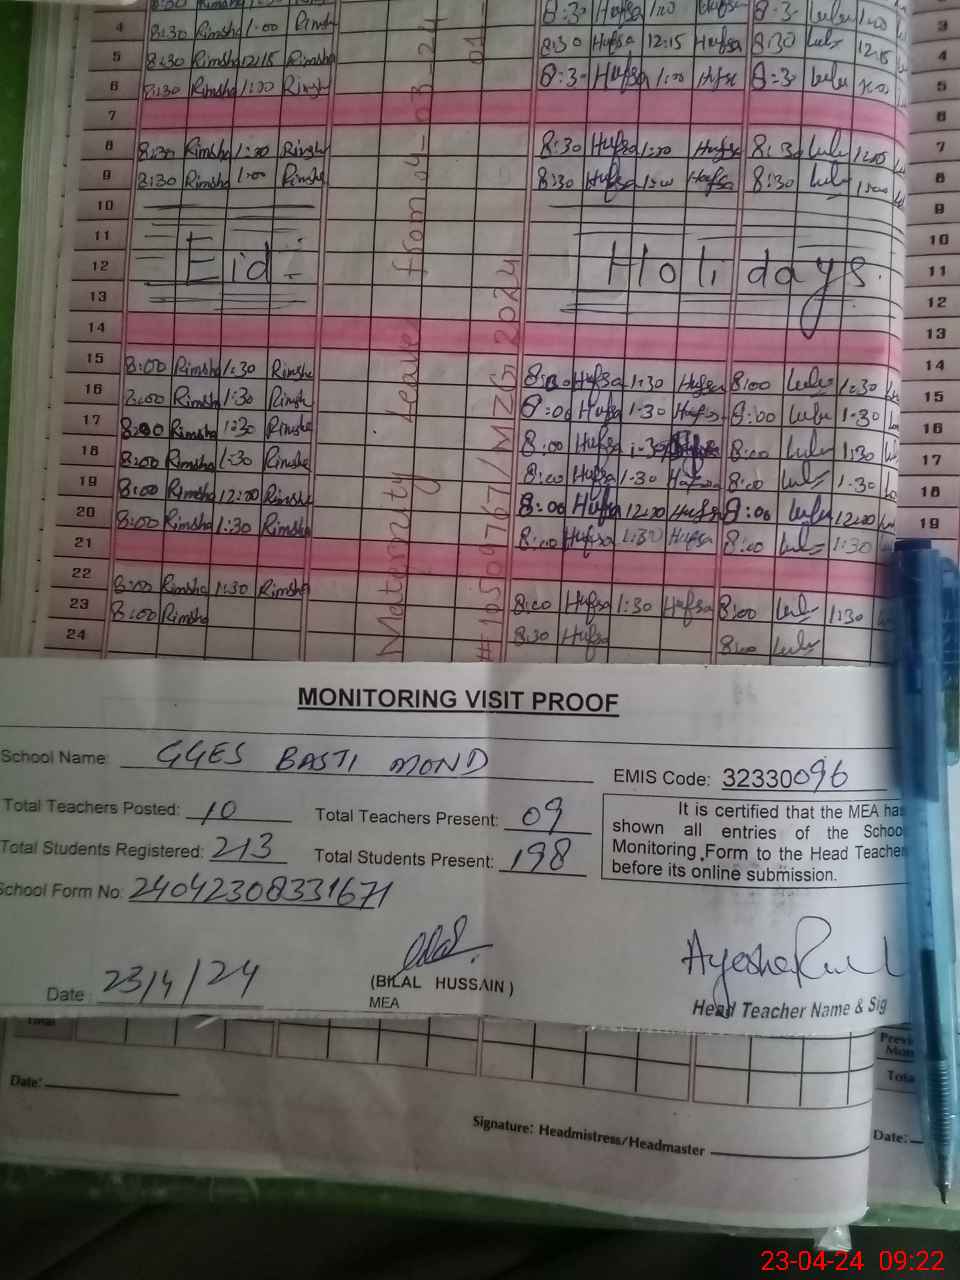 4 8:30 Rimsha 1:00 Rimsha 8:30 Hafsa 1:20 Hafsa 8:3 Lulu 1:00 3
5 8:30 Rimsha 12:15 Rimsha 8:30 Hufsa 12:15 Hafsa 8:30 Lulu 12:15 4
6 8:30 Rimsha 1:00 Rimsha 8:3 Hufsa 1:00 Hafsa 8:3 Lulu 5
7 6
8 8:30 Rimsha 1:00 Rimsha 8:30 Hufsa 1:00 Hafsa 8:30 Lulu 7
9 8:30 Rimsha 1:00 Rimsha 8:30 Hufsa 1:00 Hafsa 8:30 Lulu 8
10 9
11 10
12 Eid Holidays. 11
13 12
14 13
15 8:00 Rimsha 1:30 Rimsha 8:00 Hufsa 1:30 Hufsa 8:00 Lulu 1:30 14
16 8:00 Rimsha 1:30 Rimsha 8:00 Hufsa 1:30 Hafsa 8:00 Lulu 1:30 15
17 8:00 Rimsha 1:30 Rimsha 8:00 Hufsa 1:30 8:00 Lulu 1:30 16
18 8:00 Rimsha 1:30 Rimsha 8:00 Hufsa 1:30 Hafsa 8:00 Lulu 1:30 17
19 8:00 Rimsha 12:00 Rimsha 8:00 Hufsa 12:00 Hufsa 8:00 Lulu 12:00 18
20 8:00 Rimsha 1:30 Rimsha 8:00 Hufsa 1:30 Hufsa 8:00 Lulu 1:30 19
21
22 8:00 Rimsha 1:30 Rimsha 8:00 Hufsa 1:30 Hufsa 8:00 Lulu 1:30
23 8:00 Rimsha 8:30 Hufsa 8:00 Lulu
24
Maternity Leave from 04-03-24
#10509767/MZG 2024
MONITORING VISIT PROOF
School Name: GGES BASTI MOND
EMIS Code: 32330096
Total Teachers Posted: 10 Total Teachers Present: 09
Total Students Registered: 213 Total Students Present: 198
School Form No: 24042308331671
It is certified that the MEA has
shown all entries of the School
Monitoring Form to the Head Teacher
before its online submission.
Date: 23/4/24
(BILAL HUSSAIN)
MEA
Ayesha
Head Teacher Name & Sig
Total
Previ
Mon
Tota
Date:
Signature: Headmistress/Headmaster
Date:
23-04-24 09:22